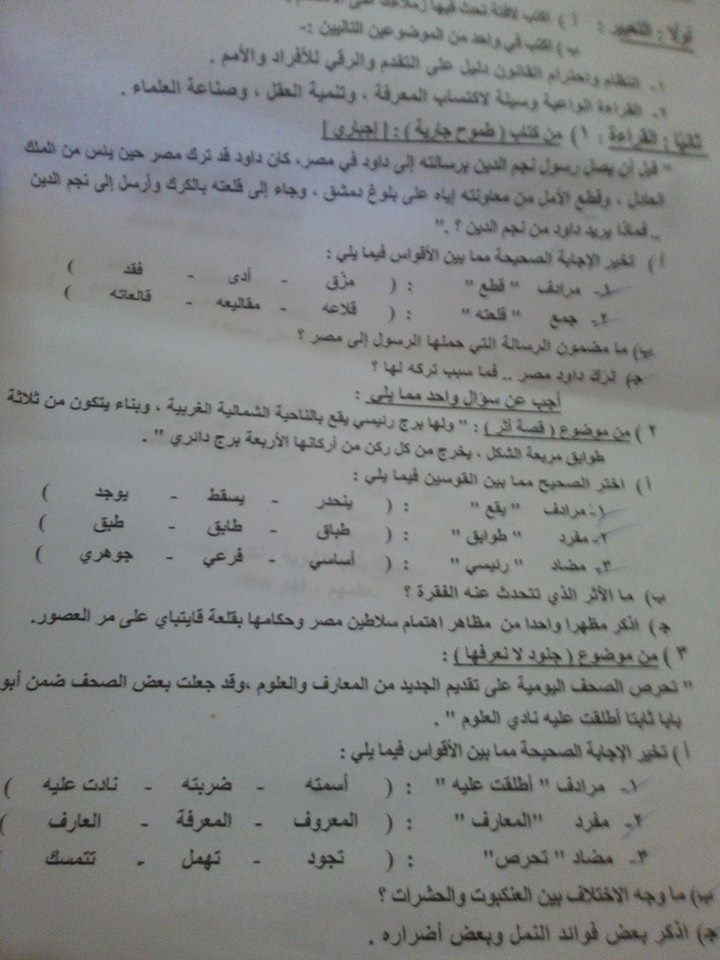 أولًا : التعبير : أ ) اكتب لافتة تحث فيها زملاءك على
ب) اكتب في واحد من الموضوعين التاليين :-
١- النظام واحترام القانون دليل على التقدم والرقي للأفراد والأمم .
٢- القراءة الواعية وسيلة لاكتساب المعرفة ، وتنمية العقل ، وصناعة العلماء .
ثانيًا : القراءة : ١) من كتاب ( طموح جارية ) : [ إجباري ]
" قبل أن يصل رسول نجم الدين برسالته إلى داود في مصر، كان داود قد ترك مصر حين يئس من الملك
العادل ، وقطع الأمل من معاونته إياه على بلوغ دمشق ، وجاء إلى قلعته بالكرك وأرسل إلى نجم الدين
.. فماذا يريد داود من نجم الدين ؟ ."
أ ) تخير الإجابة الصحيحة مما بين الأقواس فيما يلي :
١- مرادف " قطع " : ( مزّق - أدى - فقد )
٢- جمع " قلعته " : ( قلاعه - مقاليعه - قالعاته )
ب) ما مضمون الرسالة التي حملها الرسول إلى مصر ؟
ج) ترك داود مصر .. فما سبب تركه لها ؟
أجب عن سؤال واحد مما يلي :
٢ ) من موضوع ( قصة أثر ) : " ولها برج رئيسي يقع بالناحية الشمالية الغربية ، وبناء يتكون من ثلاثة
طوابق مربعة الشكل ، يخرج من كل ركن من أركانها الأربعة برج دائري " .
أ ) اختر الصحيح مما بين القوسين فيما يلي :
١- مرادف " يقع " : ( ينحدر - يسقط - يوجد )
٢- مفرد " طوابق " : ( طباق - طابق - طبق )
٣- مضاد " رئيسي " : ( أساسي - فرعي - جوهري )
ب) ما الأثر الذي تتحدث عنه الفقرة ؟
ج ) اذكر مظهرا واحدا من مظاهر اهتمام سلاطين مصر وحكامها بقلعة قايتباي على مر العصور.
٣ ) من موضوع ( جنود لا نعرفها ) :
" تحرص الصحف اليومية على تقديم الجديد من المعارف والعلوم ،وقد جعلت بعض الصحف ضمن أبو
بابا ثابتا أطلقت عليه نادي العلوم " .
أ ) تخير الإجابة الصحيحة مما بين الأقواس فيما يلي :
١- مرادف " أطلقت عليه " : ( أسمته - ضربته - نادت عليه )
٢- مفرد "المعارف " : ( المعروف - المعرفة - العارف )
٣- مضاد " تحرص" : ( تجود - تهمل - تتمسك )
ب) ما وجه الاختلاف بين العنكبوت والحشرات ؟
ج) اذكر بعض فوائد النمل وبعض أضراره .